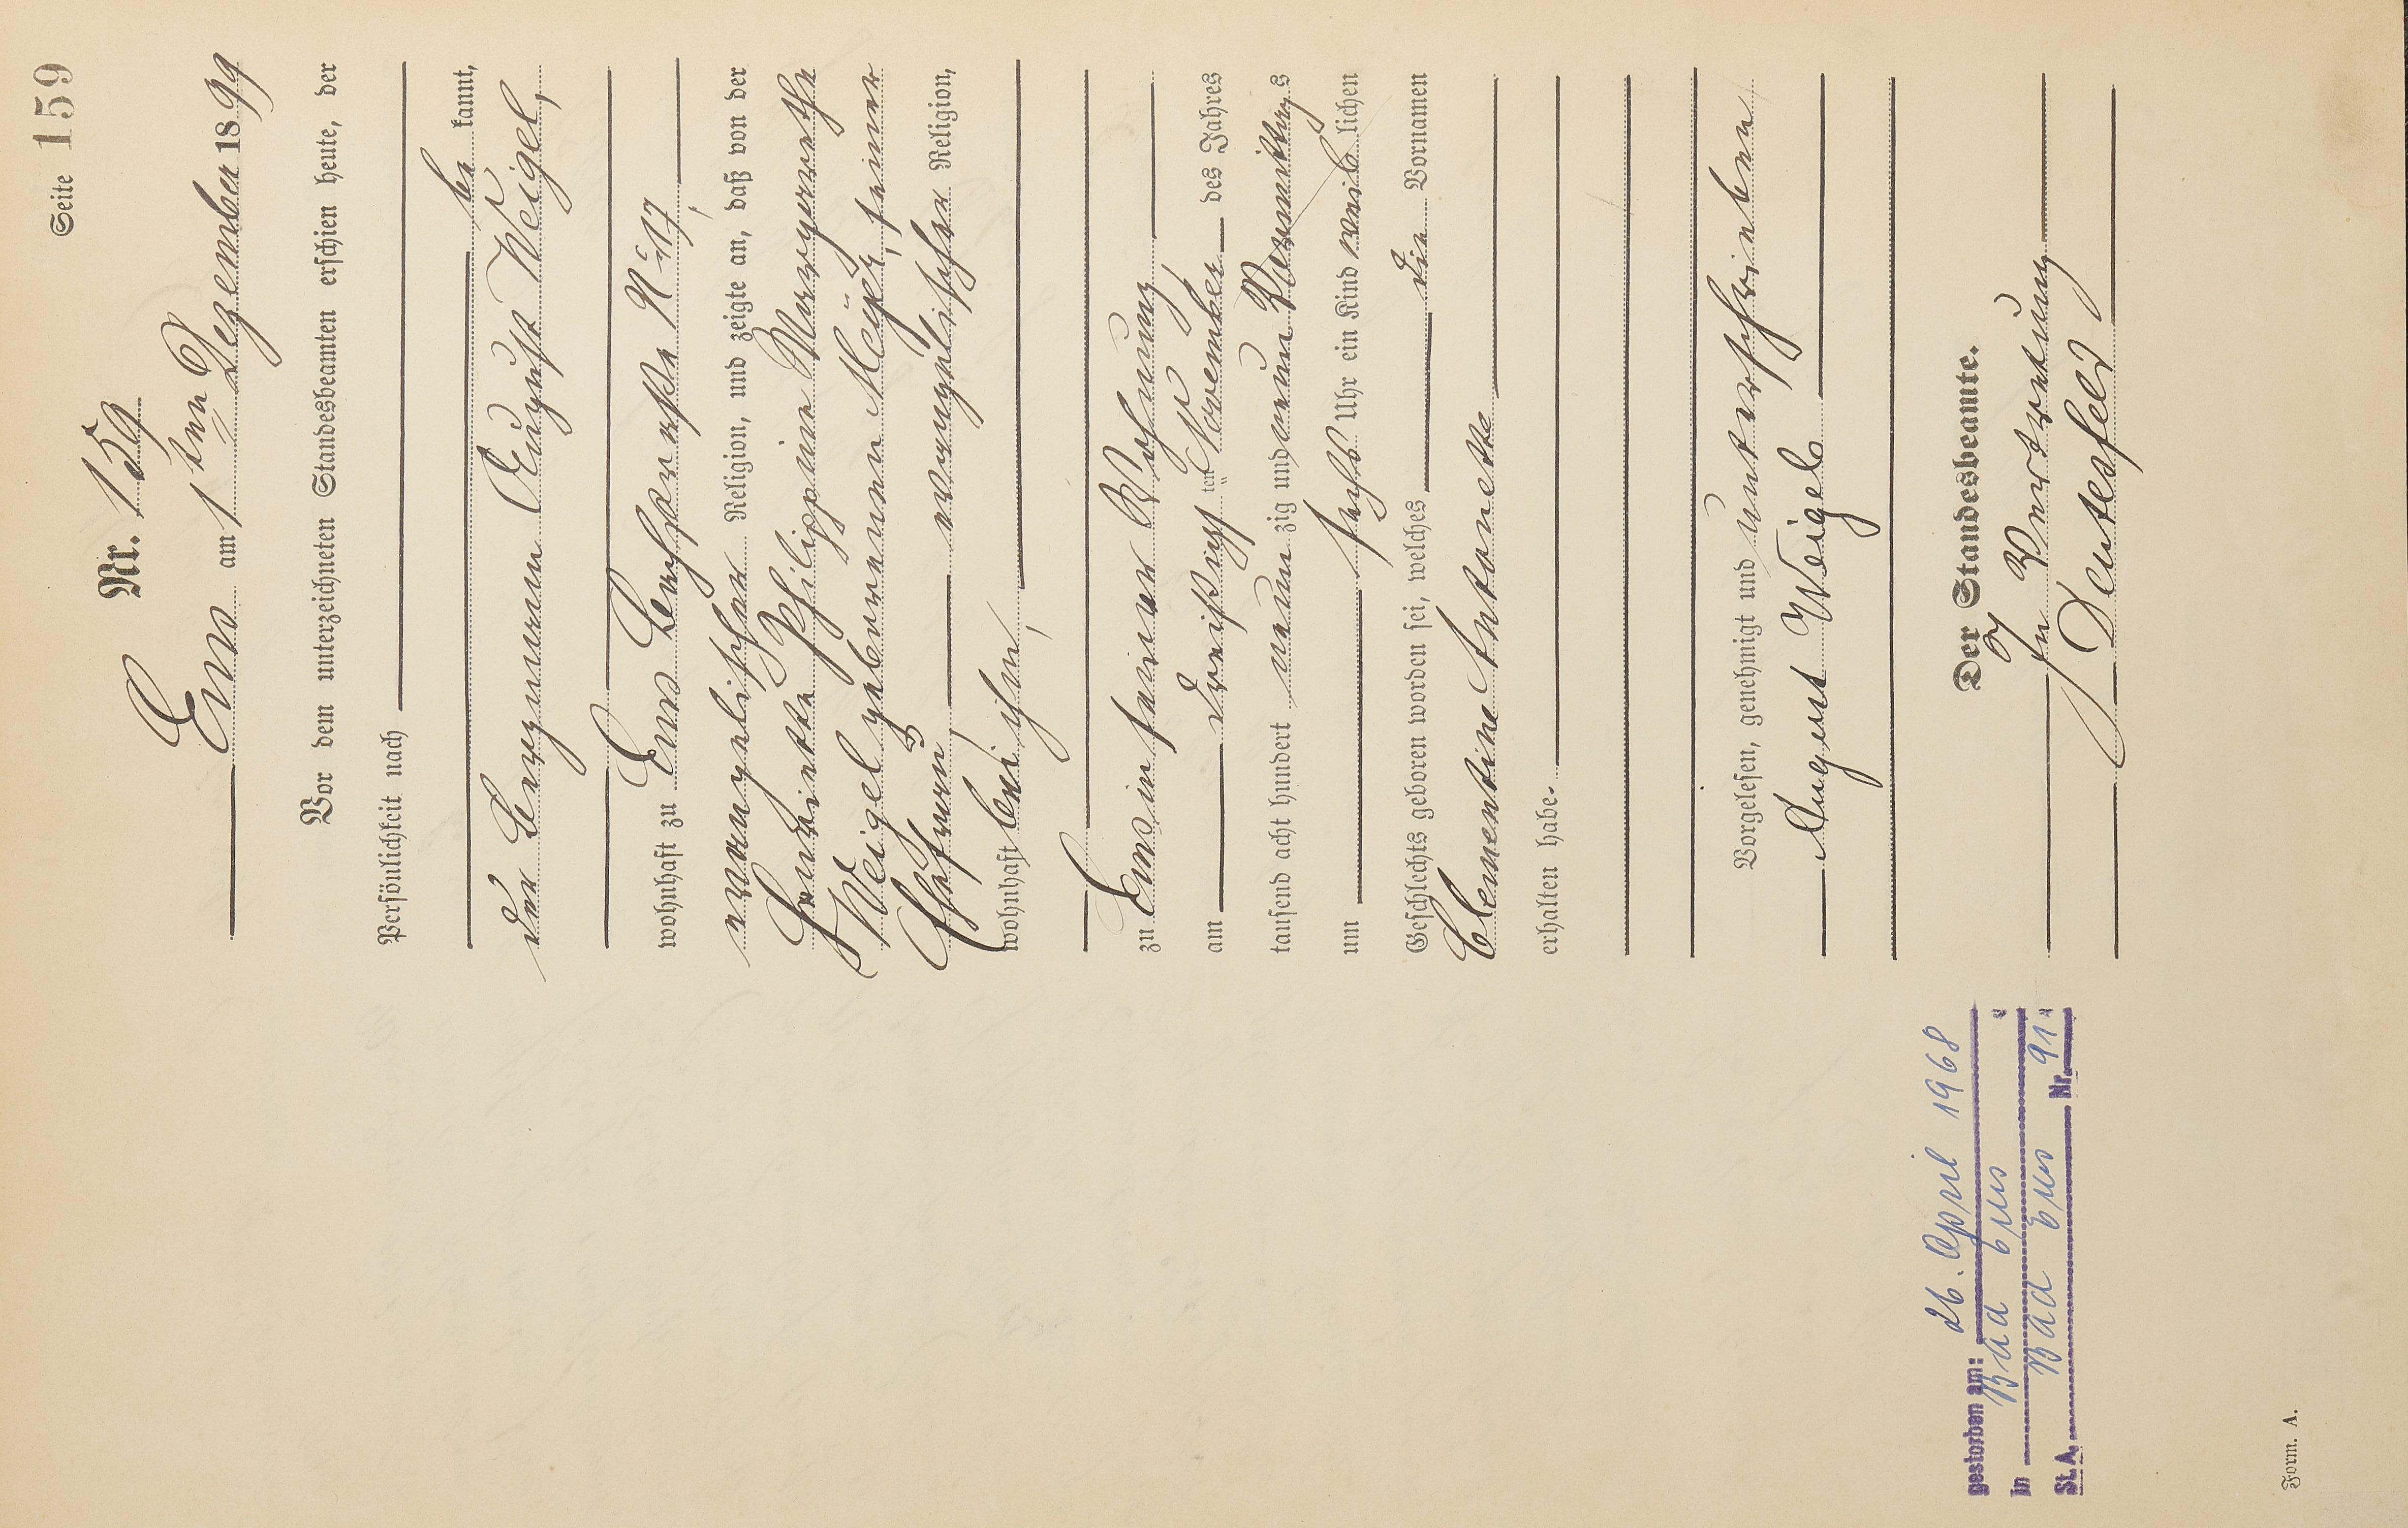 Seite 159
Nr. 159
Ems am 1ten Dezember 1899
Vor dem unterzeichneten Standesbeamten erschien heute, der
Persönlichkeit nach
be kannt,
der Bergmann August Weigel,
wohnhaft zu Ems Bachstraße No 17,
evangelischer Religion, und zeigte an, daß von der
Henriette Philippine Margarethe
Weigel geborenen Meyer, seiner
Ehefrau, evangelischer Religion,
wohnhaft bei ihm,
zu Ems in seiner Wohnung,
am dreißigsten November des Jahres
tausend acht hundert neun zig und neun Vormittags
um sechs Uhr ein Kind weib lichen
Geschlechts geboren worden sei, welches die Vornamen
Clementine Antonette
erhalten habe.
Vorgelesen, genehmigt und unterschrieben
August Weigel
Der Standesbeamte.
In Vertretung
gestorben am: 26. April 1968
in Bad Ems
St.A. Bad Ems Nr. 91.
Form. A.